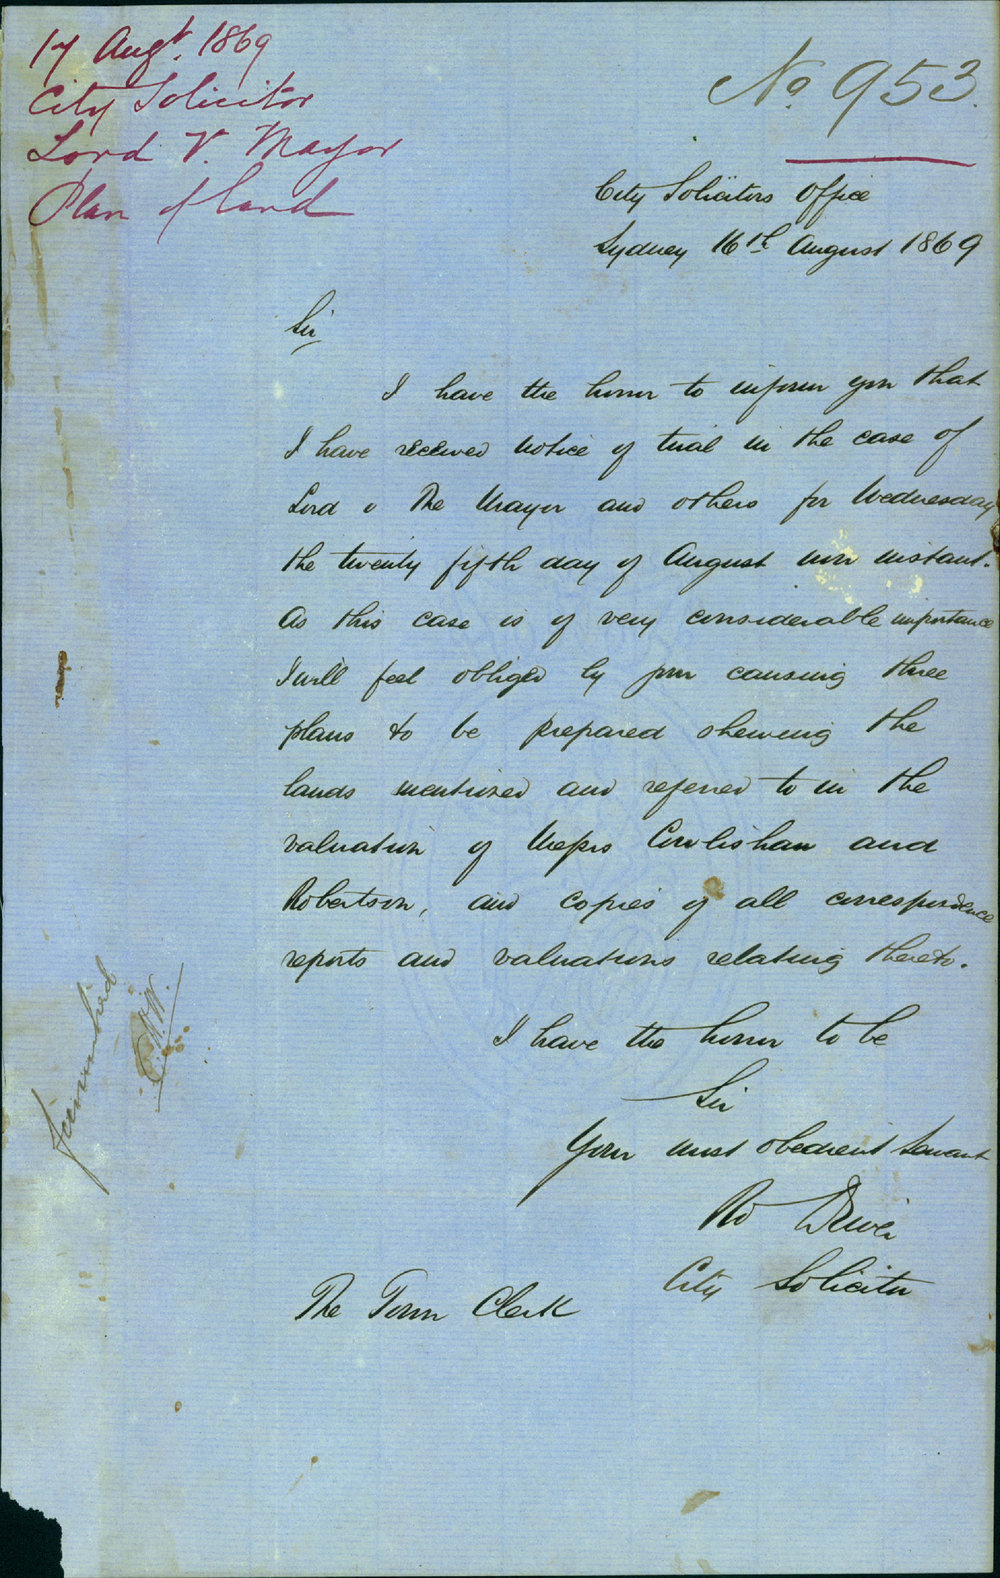 17 Augt. 1869
City Solicitor
Lord V. Mayor
Plan of land
No 953.
City Solicitors Office
Sydney 16th August 1869
Sir
I have the honor to inform you that
I have received notice of trial in the case of
Lord v The Mayor and others for Wednesday
the twenty fifth day of August now instant.
As this case is of very considerable importance
I will feel obliged by your causing three
plans to be prepared shewing the
lands mentioned and referred to in the
valuation of Messrs Cowlishaw and
Robertson, and copies of all correspondence
reports and valuations relating thereto.
I have the honor to be
Sir
Your most obedient Servant
City Solicitor
The Town Clerk